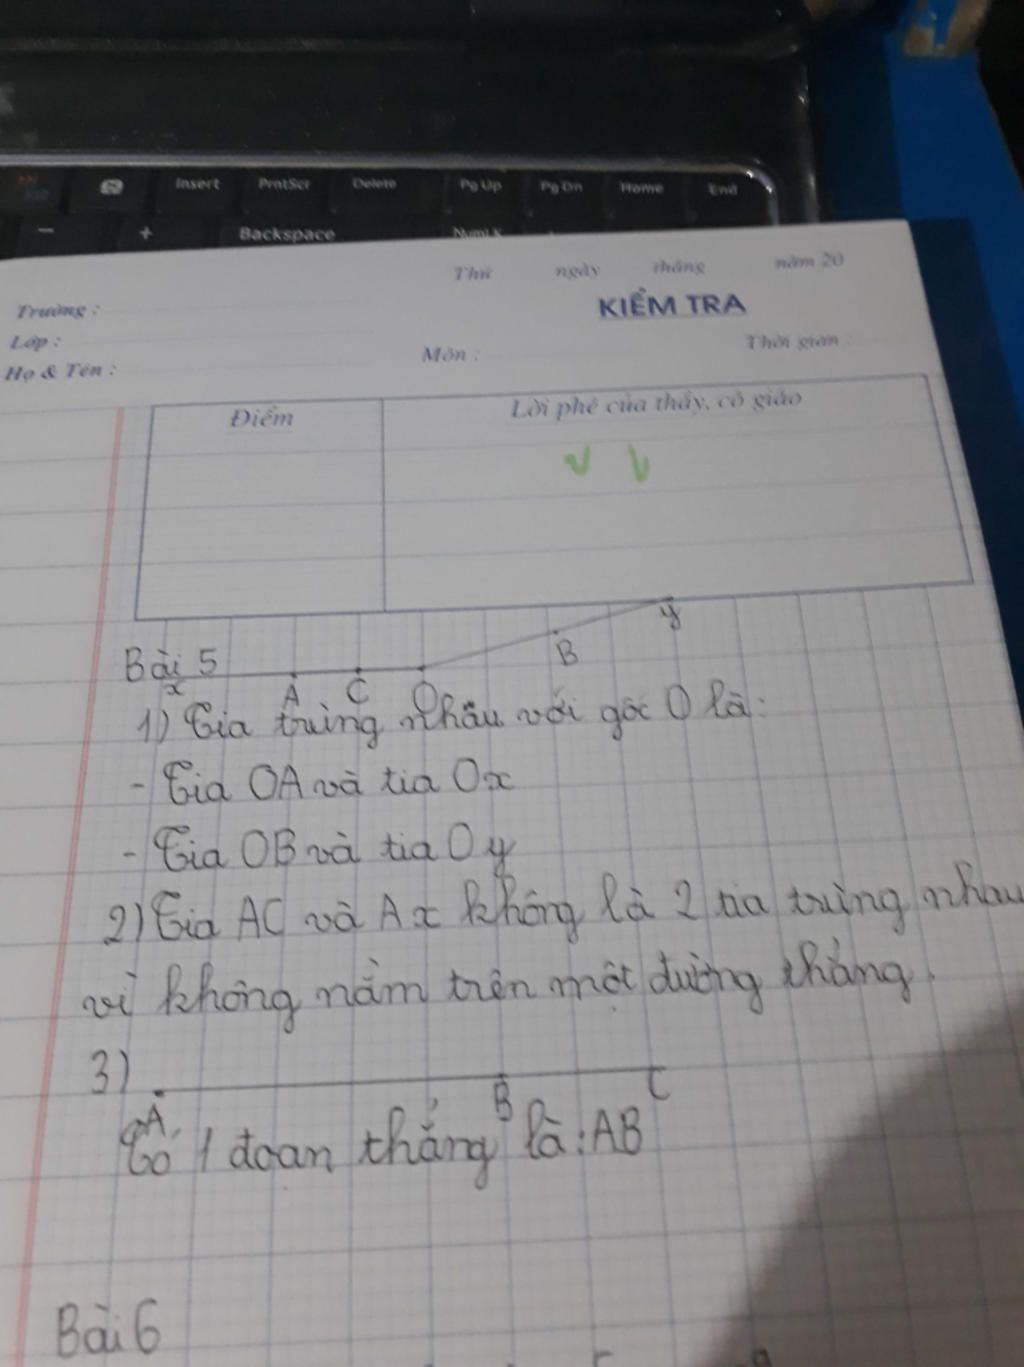 Insert PrntScr Delete Pg Up Pg Dn Home End
- + Backspace NumLK
Thứ ngày tháng năm 20
Trường :
KIỂM TRA
Lớp :
Môn :
Thời gian
Họ & Tên :
Điểm
Lời phê của thầy, cô giáo
Bài 5
x A C O B y
1) Tia trùng nhâu với gốc O là:
- Tia OA và tia Ox
- Tia OB và tia Oy
2) Tia AC và Ax không là 2 tia trùng nhau
vì không nằm trên một đường thẳng.
3)
A B C
Có 1 đoạn thẳng là: AB
Bài 6